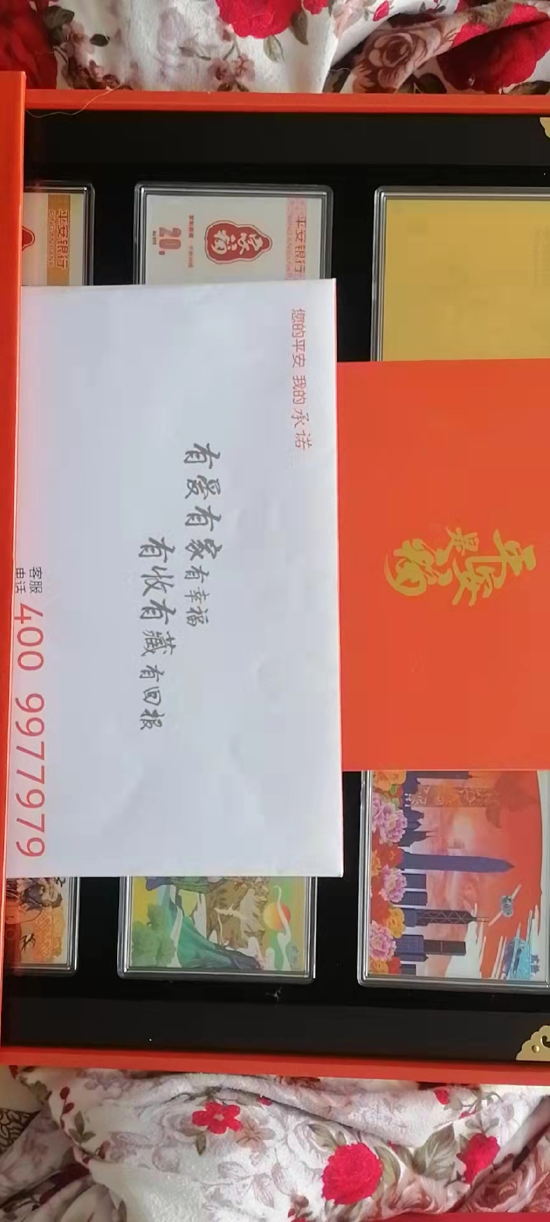 平安银行
平安银行
20g
您的平安 我的承诺
有爱有家有幸福
有收有藏有回报
平安
是福
客服
电话
400 9977979